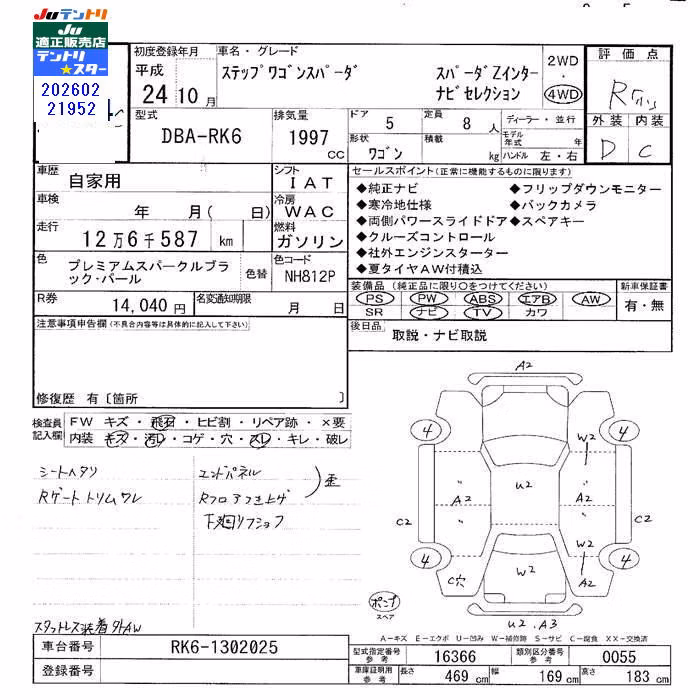 Juテントリ
Ju
適正販売店
テントリ
★スター
202602
21952
初度登録年月
平成
24 10 月
車名・グレード
ステップワゴンスパーダ
スパーダZインター
ナビセレクション
2WD
・
4WD
評価点
R
外装 内装
D C
型式
DBA-RK6
排気量
1997
cc
ドア
5
定員
8 人
形状
ワゴン
積載
kg
ディーラー・並行
モデル
年式 年
ハンドル 左・右
車歴
自家用
シフト
IAT
車検
年 月( 日)
冷房
WAC
走行
12万6千587 km
燃料
ガソリン
色
プレミアムスパークルブラ
ック・パール
色替
色コード
NH812P
R券
14,040 円
名変通知期限
月 日
セールスポイント(正常に機能するものに限ります)
◆純正ナビ ◆フリップダウンモニター
◆寒冷地仕様 ◆バックカメラ
◆両側パワースライドドア ◆スペアキー
◆クルーズコントロール
◆社外エンジンスターター
◆夏タイヤAW付積込
装備品 (純正品に限り○をつけてください)
PS PW ABS エアB AW
SR ナビ TV カワ
新車保証書
有・無
後日品
取説・ナビ取説
注意事項申告欄(不具合内容等は具体的に記入して下さい)
修復歴 有〔箇所 〕
検査員
記入欄
FW キズ・飛石・ヒビ割・リペア跡・×要
内装 キズ・汚レ・コゲ・穴・スレ・キレ・破レ
シートヘタリ
Rゲートトリムワレ
エンドパネル
Rフロアつき上ゲ
歪
下廻リフショク
スタットレス装着 外AW
A2
4
4
W2
U2
A2
A2
C2
C2
W2
4
4
C穴
W2
A2
ポンプ
スペア
U2.A3
A－キズ E－エクボ U－凹み W－補修跡 S－サビ C－腐食 XX－交換済
車台番号
RK6-1302025
登録番号
型式指定番号
参考
16366
類別区分番号
参考
0055
車庫証明用
参考
長さ
469 cm
幅
169 cm
高さ
183 cm